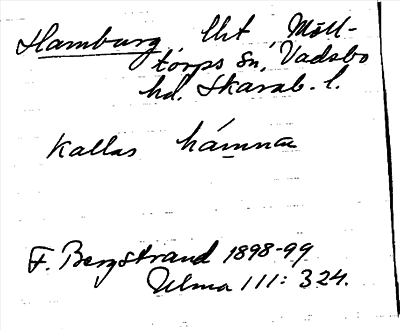 Hamburg, lht, Möll-
torps sn, Vadsbo
hd. Skarab. l.
Kallas hámna
F. Bergstrand 1898-99
Ulma 111: 324.